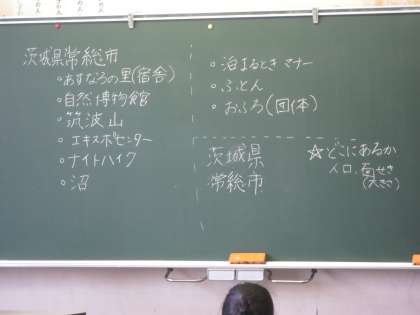 茨城県常総市
・あすなろの里(宿舎)
・自然博物館
・筑波山
・エキスポセンター
・ナイトハイク
・沼
・泊まるときマナー
・ふとん
・おふろ(団体)
茨城県
常総市
☆どこにあるか
人口、面せき
(大きさ)